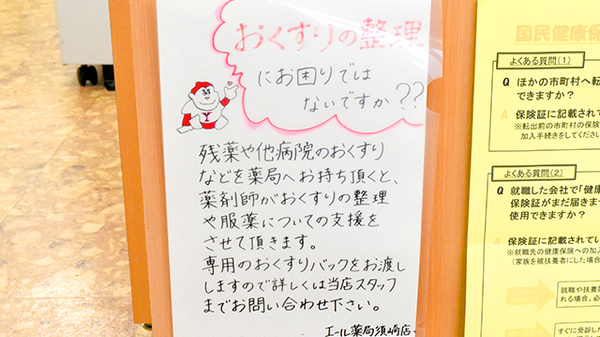 おくすりの整理
にお困りでは
ないですか??
残薬や他病院のおくすり
などを薬局へお持ち頂くと、
薬剤師がおくすりの整理
や服薬についての支援を
させて頂きます。
専用のおくすりバックをお渡し
しますので詳しくは当店スタッフ
までお問い合わせ下さい。
エール薬局須崎店
国民健康保
よくある質問(1)
Q ほかの市町村へ転
できますか?
A 保険証に記載されて
※転出前の市町村の保険
加入手続きをしてください
よくある質問(2)
Q 就職した会社で「健康
保険証がまだ届きませ
使用できますか?
A 保険証に記載されてい
※就職先の健康保険への加入
(家族を被扶養者にした場合
就職や扶養
れる場合、必
すぐに受診した